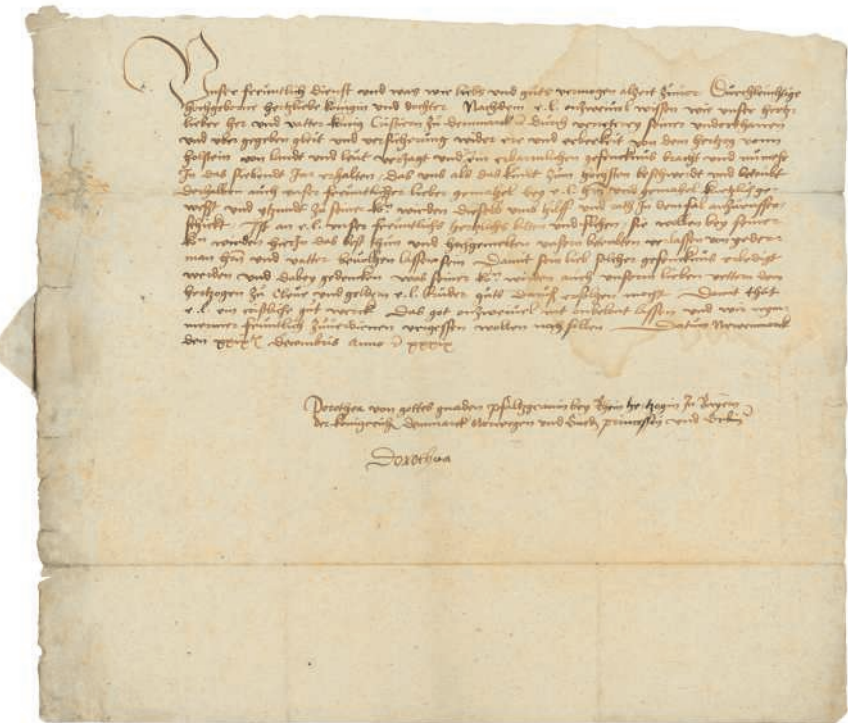 Unser freuntlich dienst und was wir liebs und guts vermogen alzeit zuvor Durchleuchtige
hochgeborne hertzliebe konigin und dochter Nachdem e.l. onzweivel wissen wie unser hertz
lieber her und vatter konig Cristiern zu denmarck durch seiner underthanen
und uber gegeben gleit und versicherung wider ere und erberkeit von dem hertzog vonn
holstein von landt und leut verjagt und in erbarmlichen gefencknus bracht und nunmehr
In das siebendt Jar erhalten, das uns als das kindt zum hochsten beschwerdt und betrubt
derhalben auch unser freuntlicher lieber gemahel bey e.l. hern und gemahel
und ytzundt zu seiner ko. wirden umb hilff und rath In dem fal
schickt, Ist an e.l. unser freuntlichs hertzlichs bitten und sie wollen bey seiner
ko. wirden hierin das best thun und unsern von yeder
man hern und vatter bevolhen lassen sein Damit sein lieb solcher gefencknus erledigt
werden und dabey gedencken was seiner ko. wirden auch unserm lieben vettern dem
hertzogen zu Cleve und geldern e.l. bruder guts daruß mogt Damit thut
e.l. ein cristliche gut werck Das got onzweivel nit onbelont lassen und wir
freuntlich zuverdienen vergessen wollen Datum Newenmarck
den xxix decembris anno xxxix
Dorothea von gottes gnaden pfaltzgravin bey Rhein hertzogin In Beyern
der konigreich Denmarck Norwegen und princessin und Erbin
Dorothea